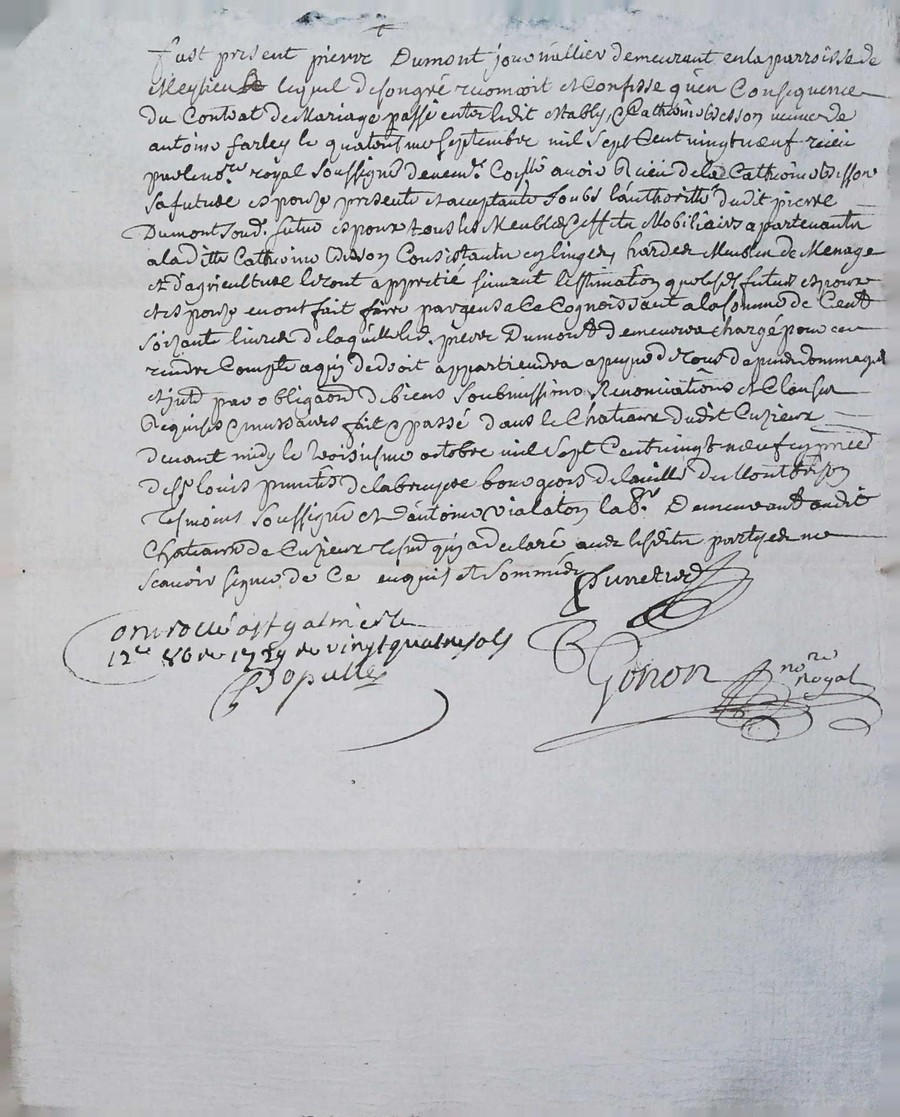 fust present pierre Dumont journallier demeurant en la parroisse de
Meylieu lequel de son gré reconnoit et confesse qu'en Consequence
du Contrat de Mariage passé entre ledit estably, & Catherine veuve de
antoine farley le quatorsiesme septembre mil sept cent vingt neuf receu
par le nore royal soussigné avoir Receu de la Catherine
sa future espouze presente et acceptante soubs l'authorité dudit pierre
Dumont sond. futur espoux tous les Meubles & effets Mobiliaires apartenants
a la ditte Catherine Consistants en linges, hardes Meubles de Menage
et d'agriculture le tout apretié suivant l'estimation que lesd. futurs espoux
et espouze en ont fait faire par gens a ce Cognoissant a la somme de Cent
soixante livres de laquelle led. pierre Dumont demeurera chargé pour en
rendre Compte a qui de droit appartiendra a peyne de tous depens dommages
et jnts par obligaon de biens soubmissions Renonciations et Clauses
Requises & necessaires fait & passé dans le Chateaux dudit Cuzieux
devant midy le troisiesme octobre mil sept Cent vingt neuf en
de sr louis de labruyere bourgeois de la ville de Montbrison
tesmoins soussigné et d'antoine vialaton labr. Demeurant audit
Chateaux de Cuzieux lesqu qui a declaré avec lesdites partyes ne
scavoir signer de Ce enquis et sommés
Controllé a st galmier le
12e 8bre 1729 re vingt quatre sols
Populle
Gonon nore royal